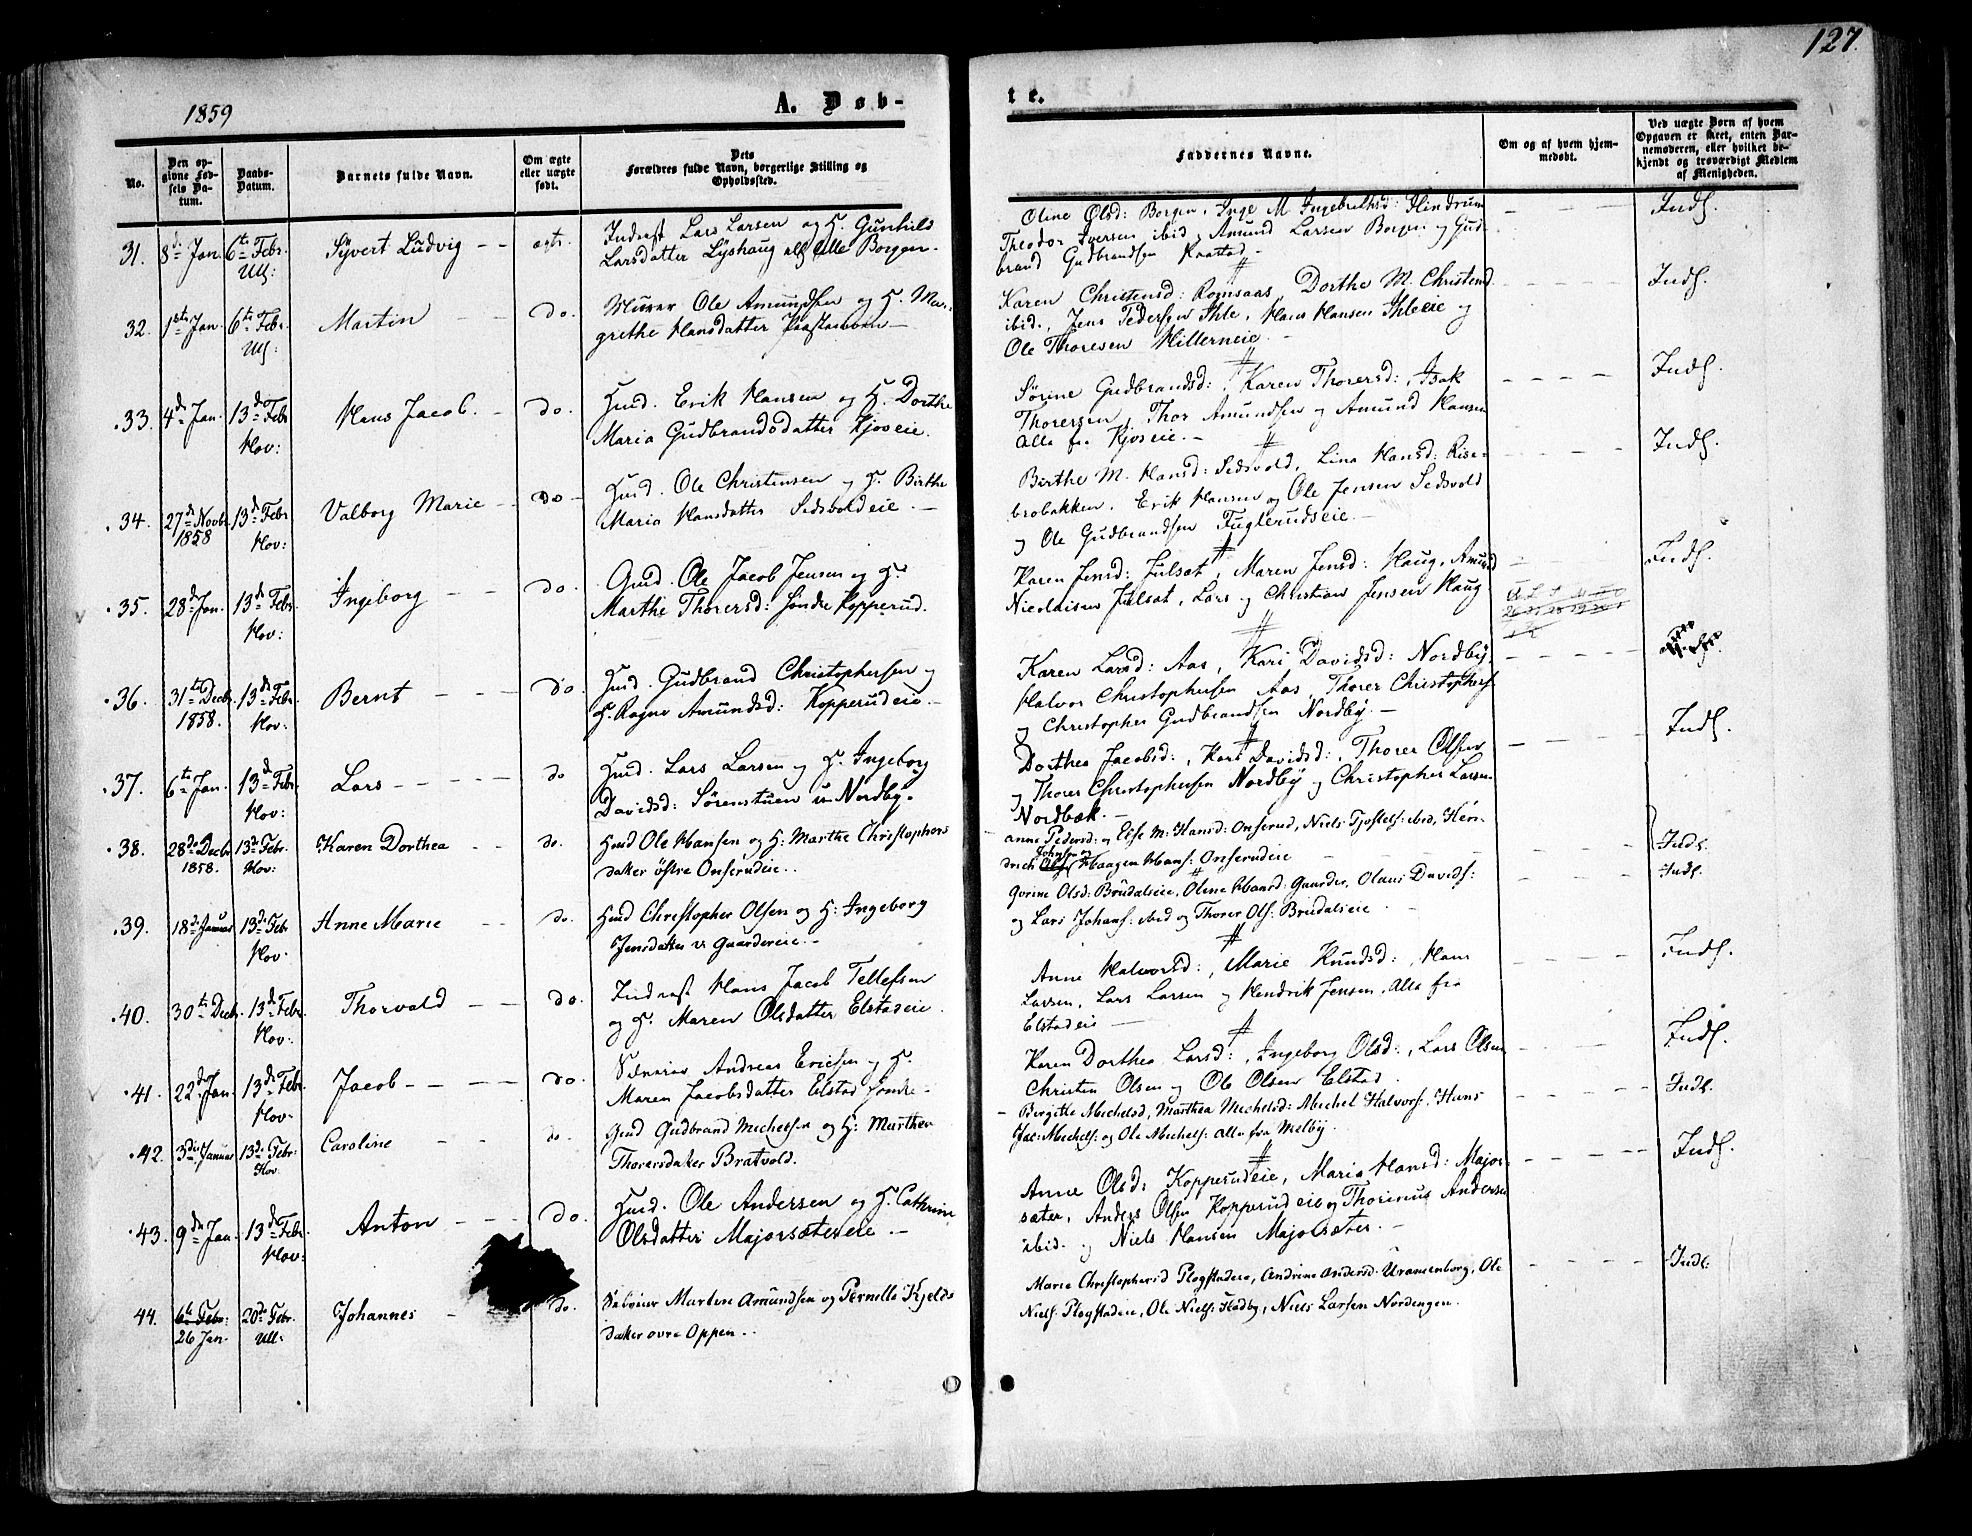 127.
1859
A. Døb-
te.
No.
Den opgivne Fødsels Datum.
Daabs-Datum.
Barnets fulde Navn.
Om ægte eller uægte født.
Dets Forældres fulde Navn, borgerlige Stilling og Opholdssted.
Faddernes Navne.
Om og af hvem hjemmedøbt.
Ved uægte Børn af hvem Opgaven er skeet, enten Barnemoderen, eller hvilket bekjendt og troværdigt Medlem af Menigheden.
31. 8de Jan. 6te Febr. Ull: Syvert Ludvig -- ægte.
Inderst Lars Larsen og H. Gunhild
Larsdatter Lyshaug alle Borgen.
Oline Olsd: Borgen, Inge M Ingebrethsd: Hindrum
Theodor Iversen ibid, Amund Larsen Borgen og Gud-
brand Gudbrandsen Raastad -
Inds.
32. 1ste Jan. 6te Febr. Ull: Martin -- do.
Murer Ole Amundsen og H. Mar-
grethe Hansdatter
Karen Christensd: Romsaas, Dorthe M. Christensd
ibid., Jens Pedersen Ihle, Hans Hansen Ihleeie og
Ole Thoresen Hillerneie.
Inds.
33. 4de Jan. 13de Febr. Hov: Hans Jacob. - do.
Husd. Erik Hansen og H. Dorthe
Maria Gudbrandsdatter Kjoseie.
Sørine Gudbrandsd:, Karen Thorersd:, Isak
Thorersen, Thor Amundsen og Amund Hansen
Alle fra Kjoseie. -
Inds.
34. 27de Novbr. 1858 13de Febr. Hov: Valborg Marie -- do -
Husd. Ole Christensen og H. Birthe
Maria Hansdatter Sedsvoldeie. -
Birthe M. Hansd: Sedsvold, Lina Hansd: Rise-
brobakken, Erik Hansen og Ole Jensen Sedsvold
og Ole Gudbrandsen Fuglerudseie. -
Inds.
35. 28de Jan. 13de Febr. Hov: Ingeborg -- do.
Gmd. Ole Jacob Jensen og H.
Marthe Thorersd: Søndre Kopperud.
Karen Jensd: Julsat, Maren Jensd: Haug, Amund
Nicolaisen Julsat, Lars og Christian Jensen Haug
Inds.
36. 31te Decbr. 1858. 13de Febr. Hov: Bernt --- do.
Husd. Gudbrand Christophersen og
H. Ragne Amundsd: Kopperudeie. -
Karen Larsd: Aas, Kari Davidsd: Nordby,
Halvor Christophersen Aas, Thorer Christophers.
og Christopher Gudbrandsen Nordby. -
37. 6te Jan. 13de Febr. Hov: Lars -- do
Husd. Lars Larsen og H. Ingeborg
Davidsd: Sørenstuen u. Nordby.
Dorthea Jacobsd:, Kari Davidsd:, Thorer Olsen
og Thorer Christophersen Nordby og Christopher Larsen
Nordbæk. -
Inds.
38. 28de Decbr. 1858. 13de Febr. Hov: Karen Dorthea -- do.
Husd Ole Hansen og H: Marthe Christophers
datter østre Onserudeie..
anne Pedersd: og Else M: Hansd: Onserud, Niels Gjostels: ibid, Hen-
drich Olsen Johnsen og Haagen Hans: Onserudeie
Inds.
39. 18de Januar 13de Febr Hov. Anne Marie -- do.
Husd Christopher Olsen og H: Ingeborg
Jensdatter v. Gaardereie. -
Gorine Olsd: Brudalseie, Oline Hansd: Gaarder, Olaus Davids:
og Lars Johans: ibid og Thorer Ols: Brudalseie
Inds.
40. 30te Decbr. 13de Febr. Hov: Thorvald -- do.
Inderst Hans Jacob Tellefsen
og H. Maren Olsdatter Elstadeie.
Anne Halvorsd:, Marie Knudsd:, Hans
Larsen, Lars Larsen og Hendrik Jensen, Alle fra
Elstadeie -
Inds.
41. 22de Jan. 13de Febr. Hov. Jacob --- do.
Andreas Ericsen og H.
Maren Jacobsdatter Elstad søndre -
Karen Dorthea Larsd:, Ingeborg Olsd:, Lars Olsen
Christen Olsen og Ole Olsen Elstad.
Inds.
42. 3die Januar 13de Febr: Hov. Caroline -- do.
Gmd Gudbrand Michelsen og H: Marthea
Thorersdatter Bratvold.
Birgitte Michelsd, Marthea Michelsd: Michel Halvors. Hans
Jac: Michels: og Ole Michels: alle fra Melby.
Inds.
43. 9de Jan. 13de Febr. Hov: Anton --- do.
Husd. Ole Andersen og H. Cathrine
Olsdatter Majorsætereie. -
Anne Olsd: Kopperudeie, Maria Hansd: Major-
sæter, Anders Olsen Kopperudeie og Thorinus Andersen
ibid. og Niels Hansen Majorsæter. -
Inds.
44. 6te Febr: 26 Jan. 20de Febr. Ull: Johannes - do.
Selveier Martin Amundsen og Pernille Kjelds
datter øvre Oppen..
Marie Christophersd Plogstadeie, Andrine Andersd. Uranienborg, Ole
Niels. Plogstadeie, Ole Niels: Hadby, Niels Larsen Nordengen.
Inds.